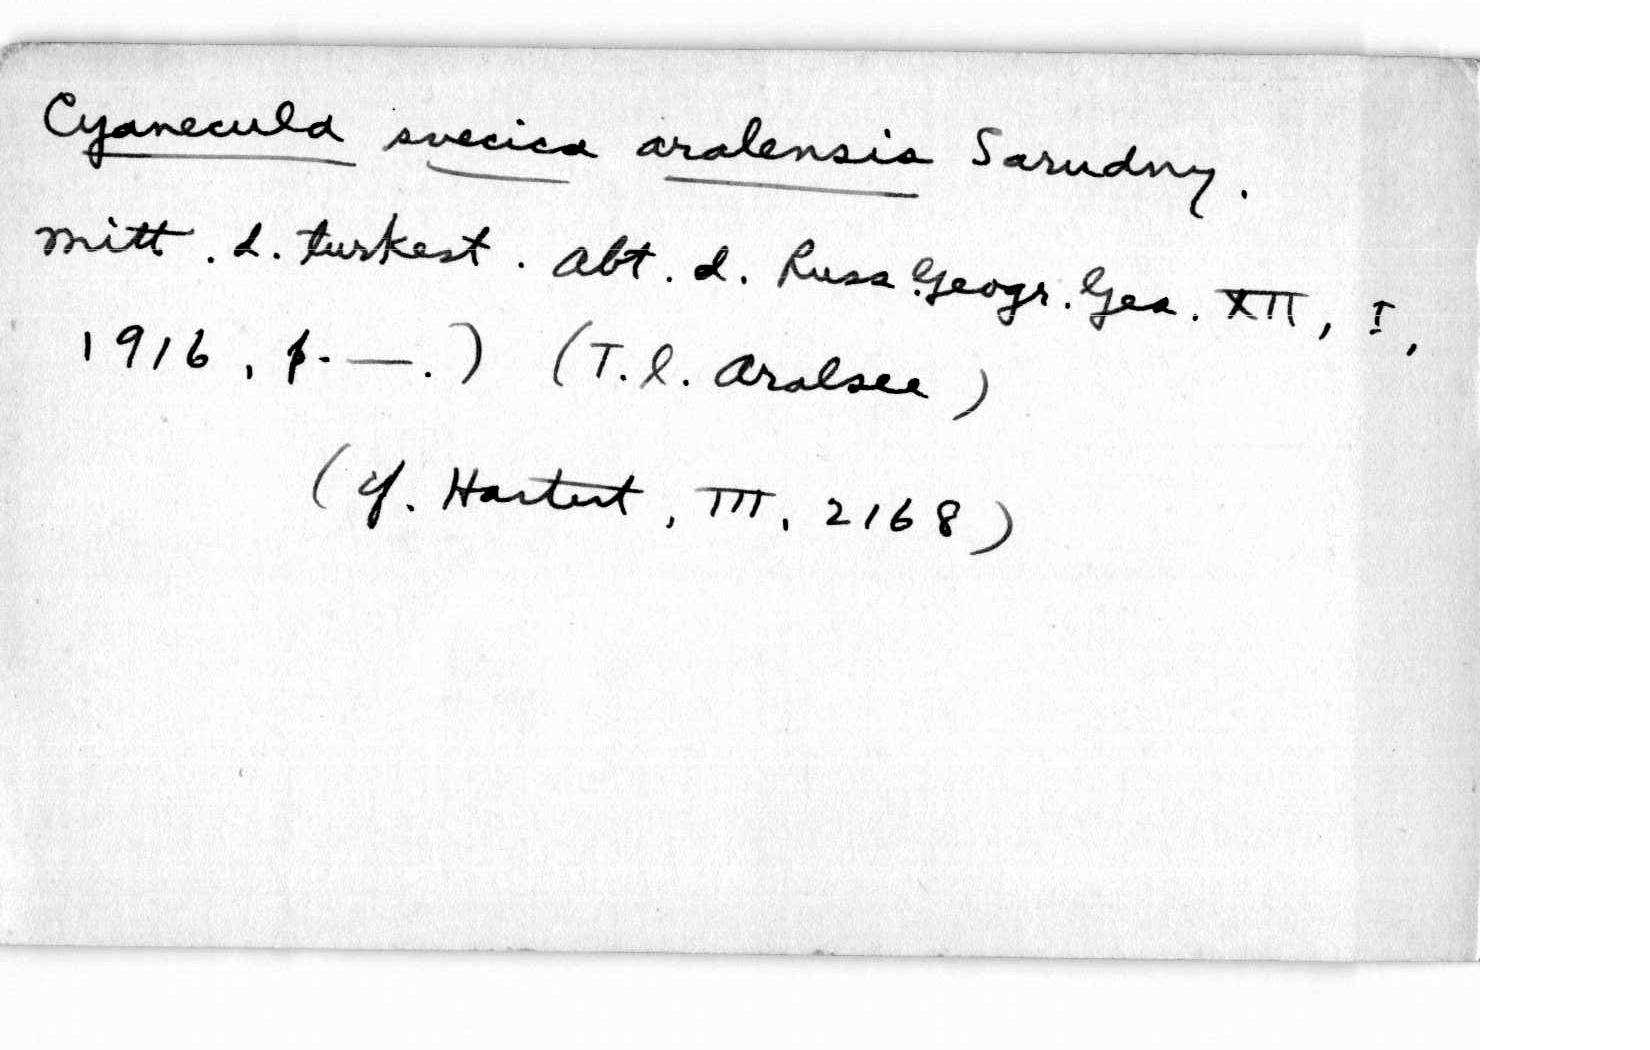 Cyanecula svecica aralensis Sarudny.
Mitt. d. turkest. Abt. d. Russ. Geogr. Ges. XII, I,
1916, p. —.) (T.l. Aralsee)
(cf. Hartert, III, 2168)